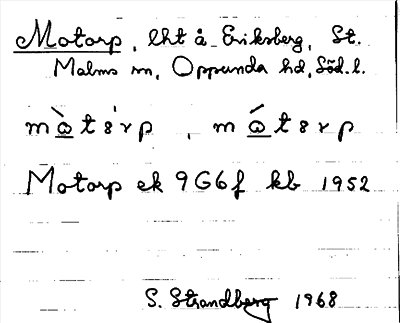 Motorp, lht å Eriksberg, St.
Malms sn, Oppunda hd, Söd. l.
mò̲tɜ́rp, mó̲tɜrp
Motorp ek 9G6f kb 1952
S. Strandberg 1968